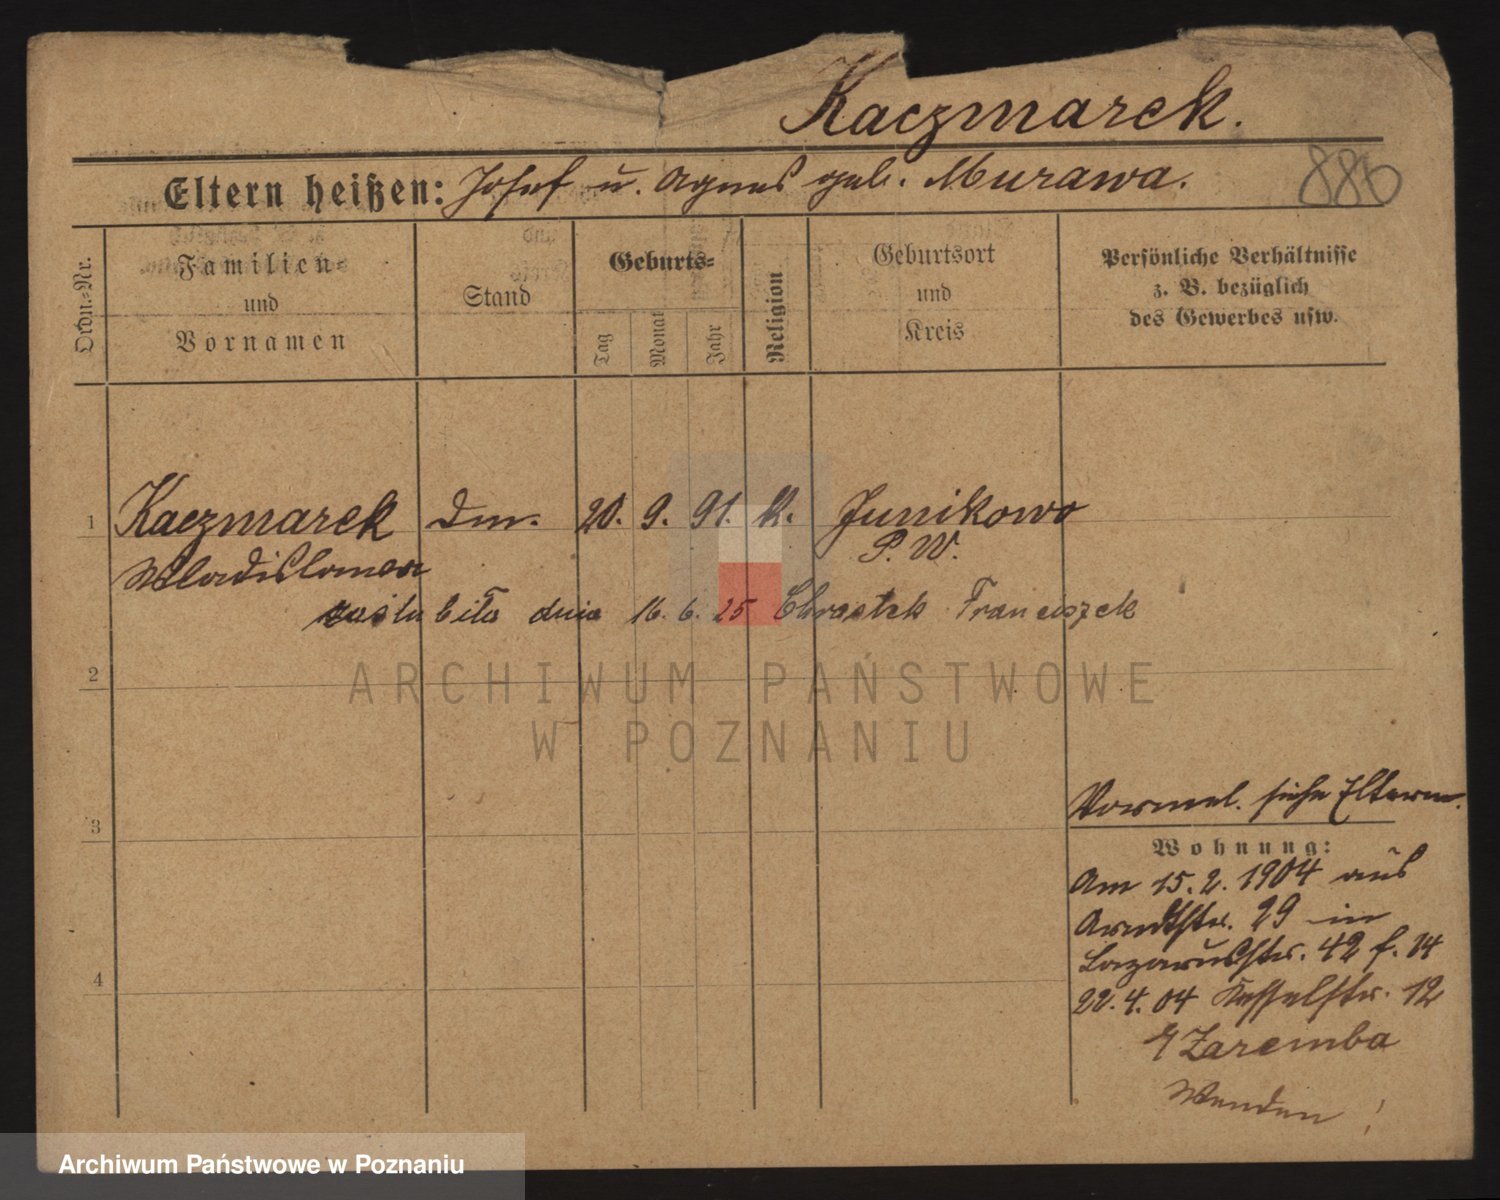 Kaczmarek.
Eltern heißen: Josef u. Agnes geb. Murawa.
886
Ordn.=Nr.
Familien=
und
Vornamen
Stand
Geburts=
Tag
Monat
Jahr
Religion
Geburtsort
und
Kreis
Persönliche Verhältnisse
z. B. bezüglich
des Gewerbes usw.
1 Kaczmarek 20. 9. 91. K. Junikowo
Wladislawa P. W.
zaślubiła dnia 16. 6. 25 Chrostek Franciszek
2
ARCHIWUM PAŃSTWOWE
W POZNANIU
3
4
siehe Eltern.
Wohnung:
Am 15. 2. 1904 aus
Arndtstr. 29 in
Lazarusstr. 42 f. 14
22. 4. 04 Kesselstr. 12
Zaremba
Wenden!
Archiwum Państwowe w Poznaniu